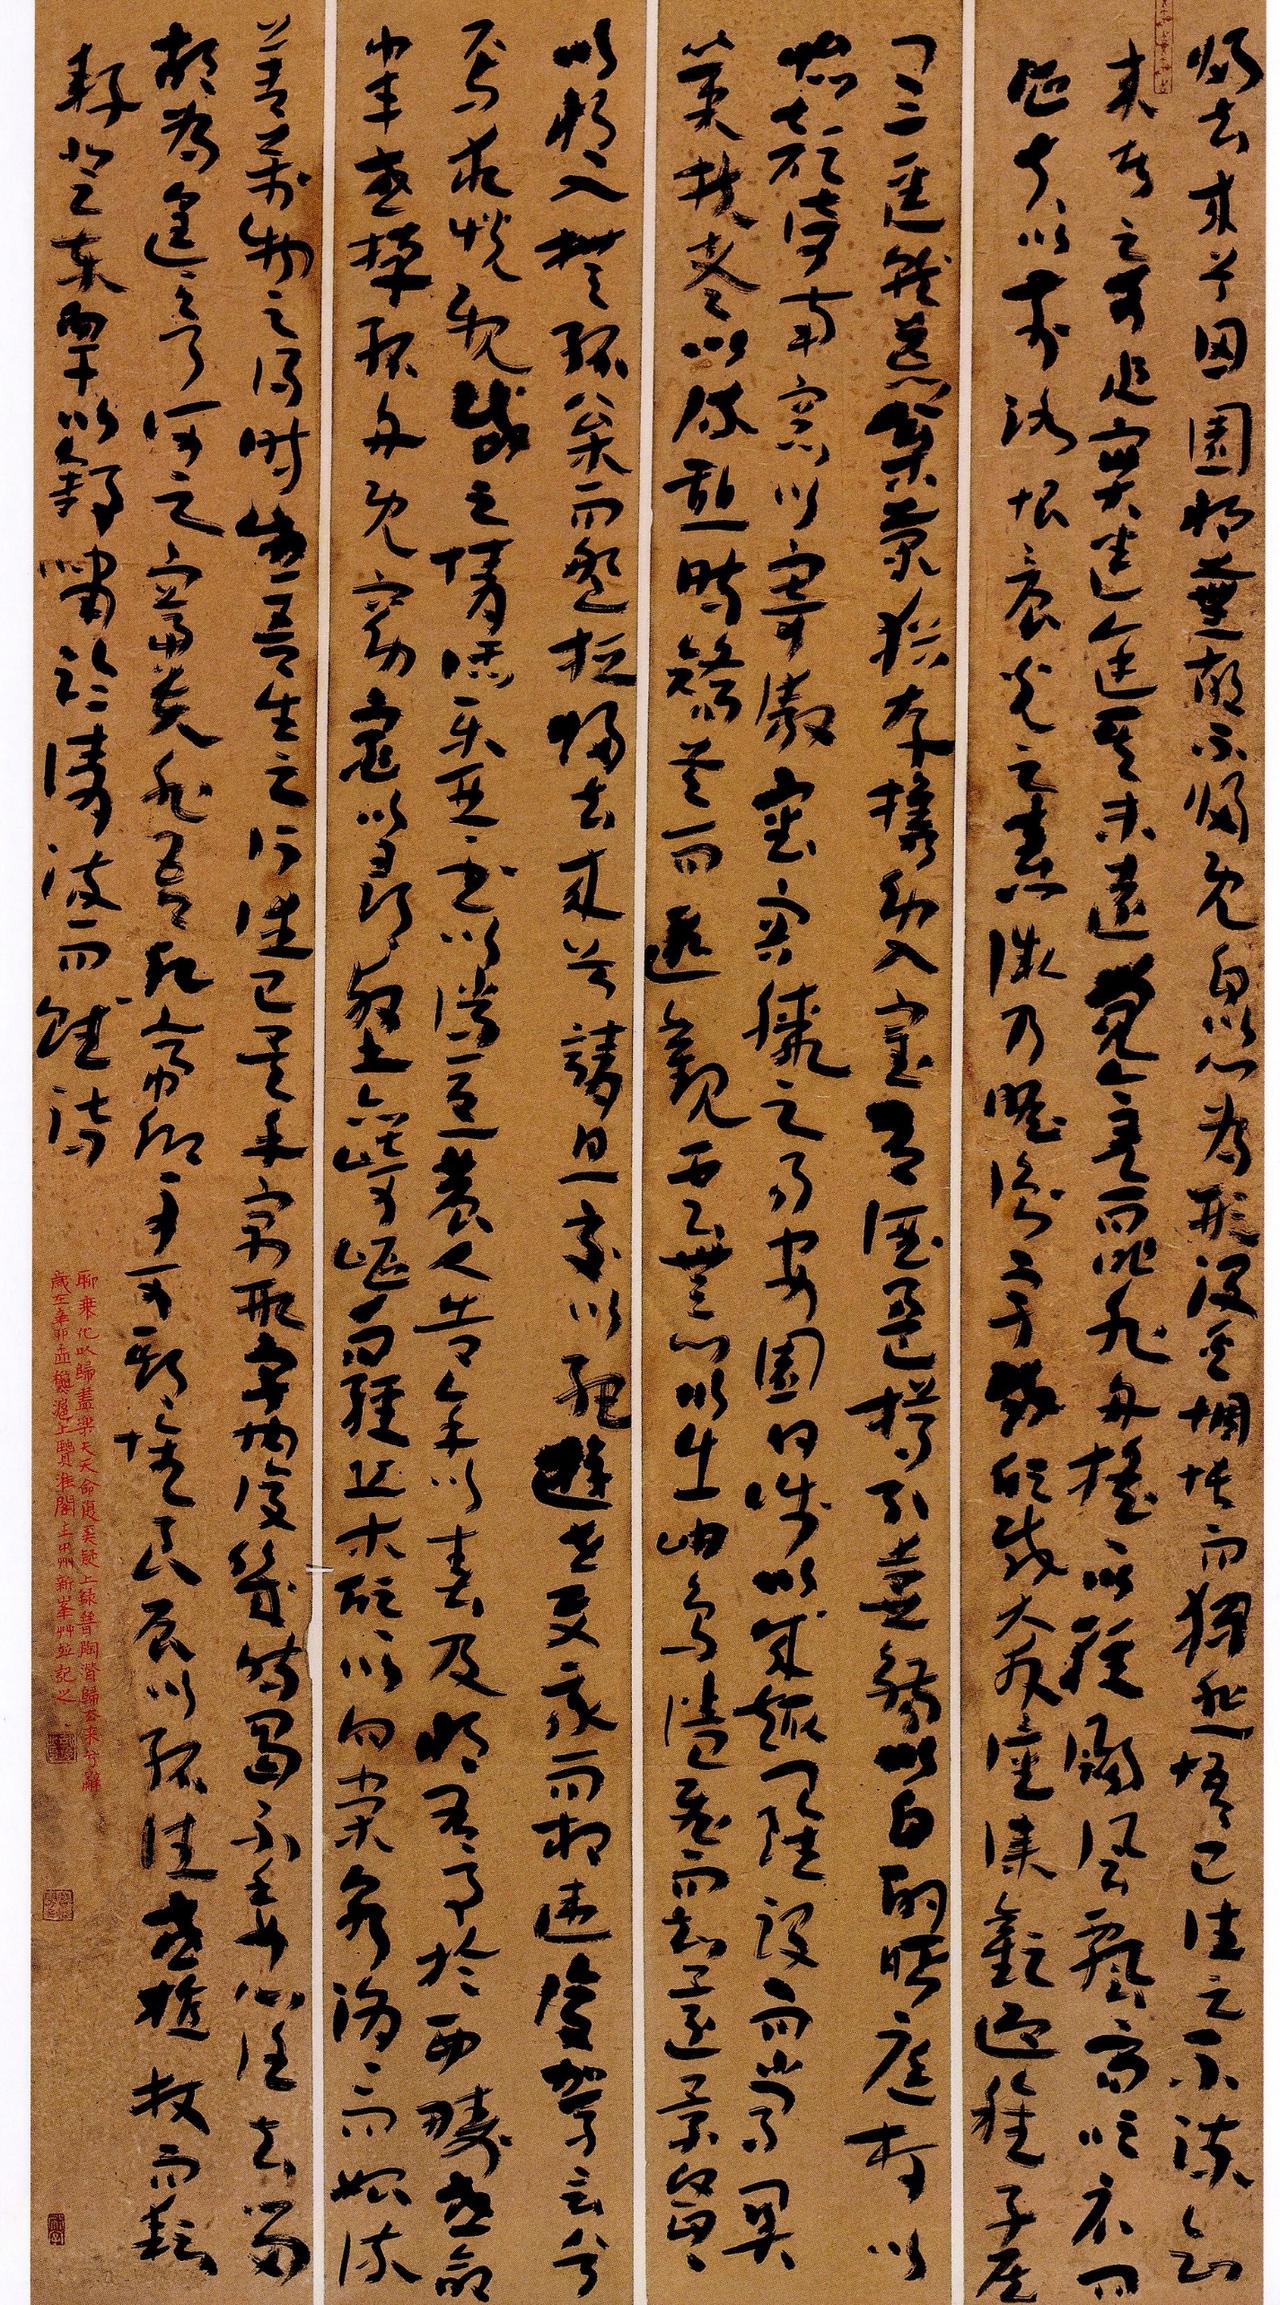 歸去來兮田園將蕪胡不歸既自以心為形役奚惆悵而獨悲悟已往之不諫知
來者之可追實迷途其未遠覺今是而昨非舟搖以輕颺風飄而吹衣問
征夫以前路恨晨光之熹微乃瞻衡宇載欣載奔僮僕歡迎稚子候
門三逕就荒松菊猶存攜幼入室有酒盈樽引壺觴以自酌眄庭柯以
怡顏倚南窗以寄傲審容膝之易安園日涉以成趣門雖設而常關
策扶老以流憩時矯首而遐觀雲無心以出岫鳥倦飛而知還景翳翳
以將入撫孤松而盤桓歸去來兮請息交以絕遊世與我而相違復駕言兮
焉求悅親戚之情話樂琴書以消憂農人告余以春及將有事於西疇或命
巾車或棹孤舟既窈窕以尋壑亦崎嶇而經丘木欣以向榮泉涓而始流
善萬物之得時感吾生之行休已矣乎寓形宇內復幾時曷不委心任去留
胡為遑遑兮何之富貴非吾願帝鄉不可期懷良辰以孤往或植杖而耘
耔登東皋以舒嘯臨清流而賦詩
聊乘化以歸盡樂夫天命復奚疑上錄晉陶潛歸去來兮辭
歲在辛卯孟滬上淮閣主中州新峯艸並記之